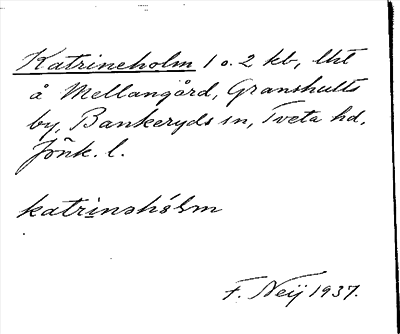 Katrineholm 1 o. 2 kb, lht
å Mellangård, Granshults
by, Bankeryds sn, Tveta hd,
Jönk. l.
katrinshólm
F. Neij 1937.